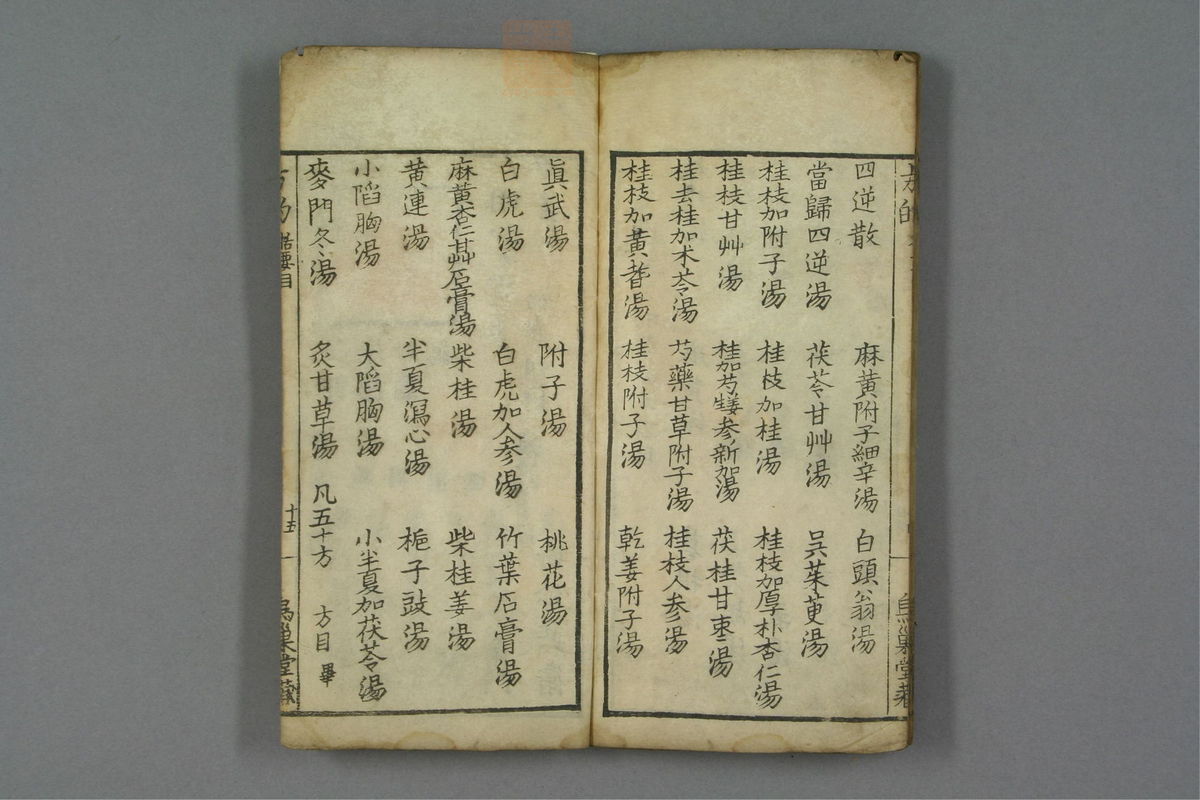 四逆散 麻黄附子細辛湯 白頭翁湯
當歸四逆湯 茯苓甘艸湯 呉茱萸湯
桂枝加附子湯 桂枝加桂湯 桂枝加厚朴杏仁湯
桂枝甘艸湯 桂加芍姜参新加湯 茯桂甘枣湯
桂去桂加术苓湯 芍藥甘草附子湯 桂枝人参湯
桂枝加黄耆湯 桂枝附子湯 乾姜附子湯
眞武湯 附子湯 桃花湯
白虎湯 白虎加人参湯 竹葉石膏湯
麻黄杏仁甘艸石膏湯 柴桂湯 柴桂姜湯
黄連湯 半夏瀉心湯 梔子豉湯
小䧟胸湯 大䧟胸湯 小半夏加茯苓湯
麥門冬湯 炙甘草湯 凡五十方 方目畢
十五